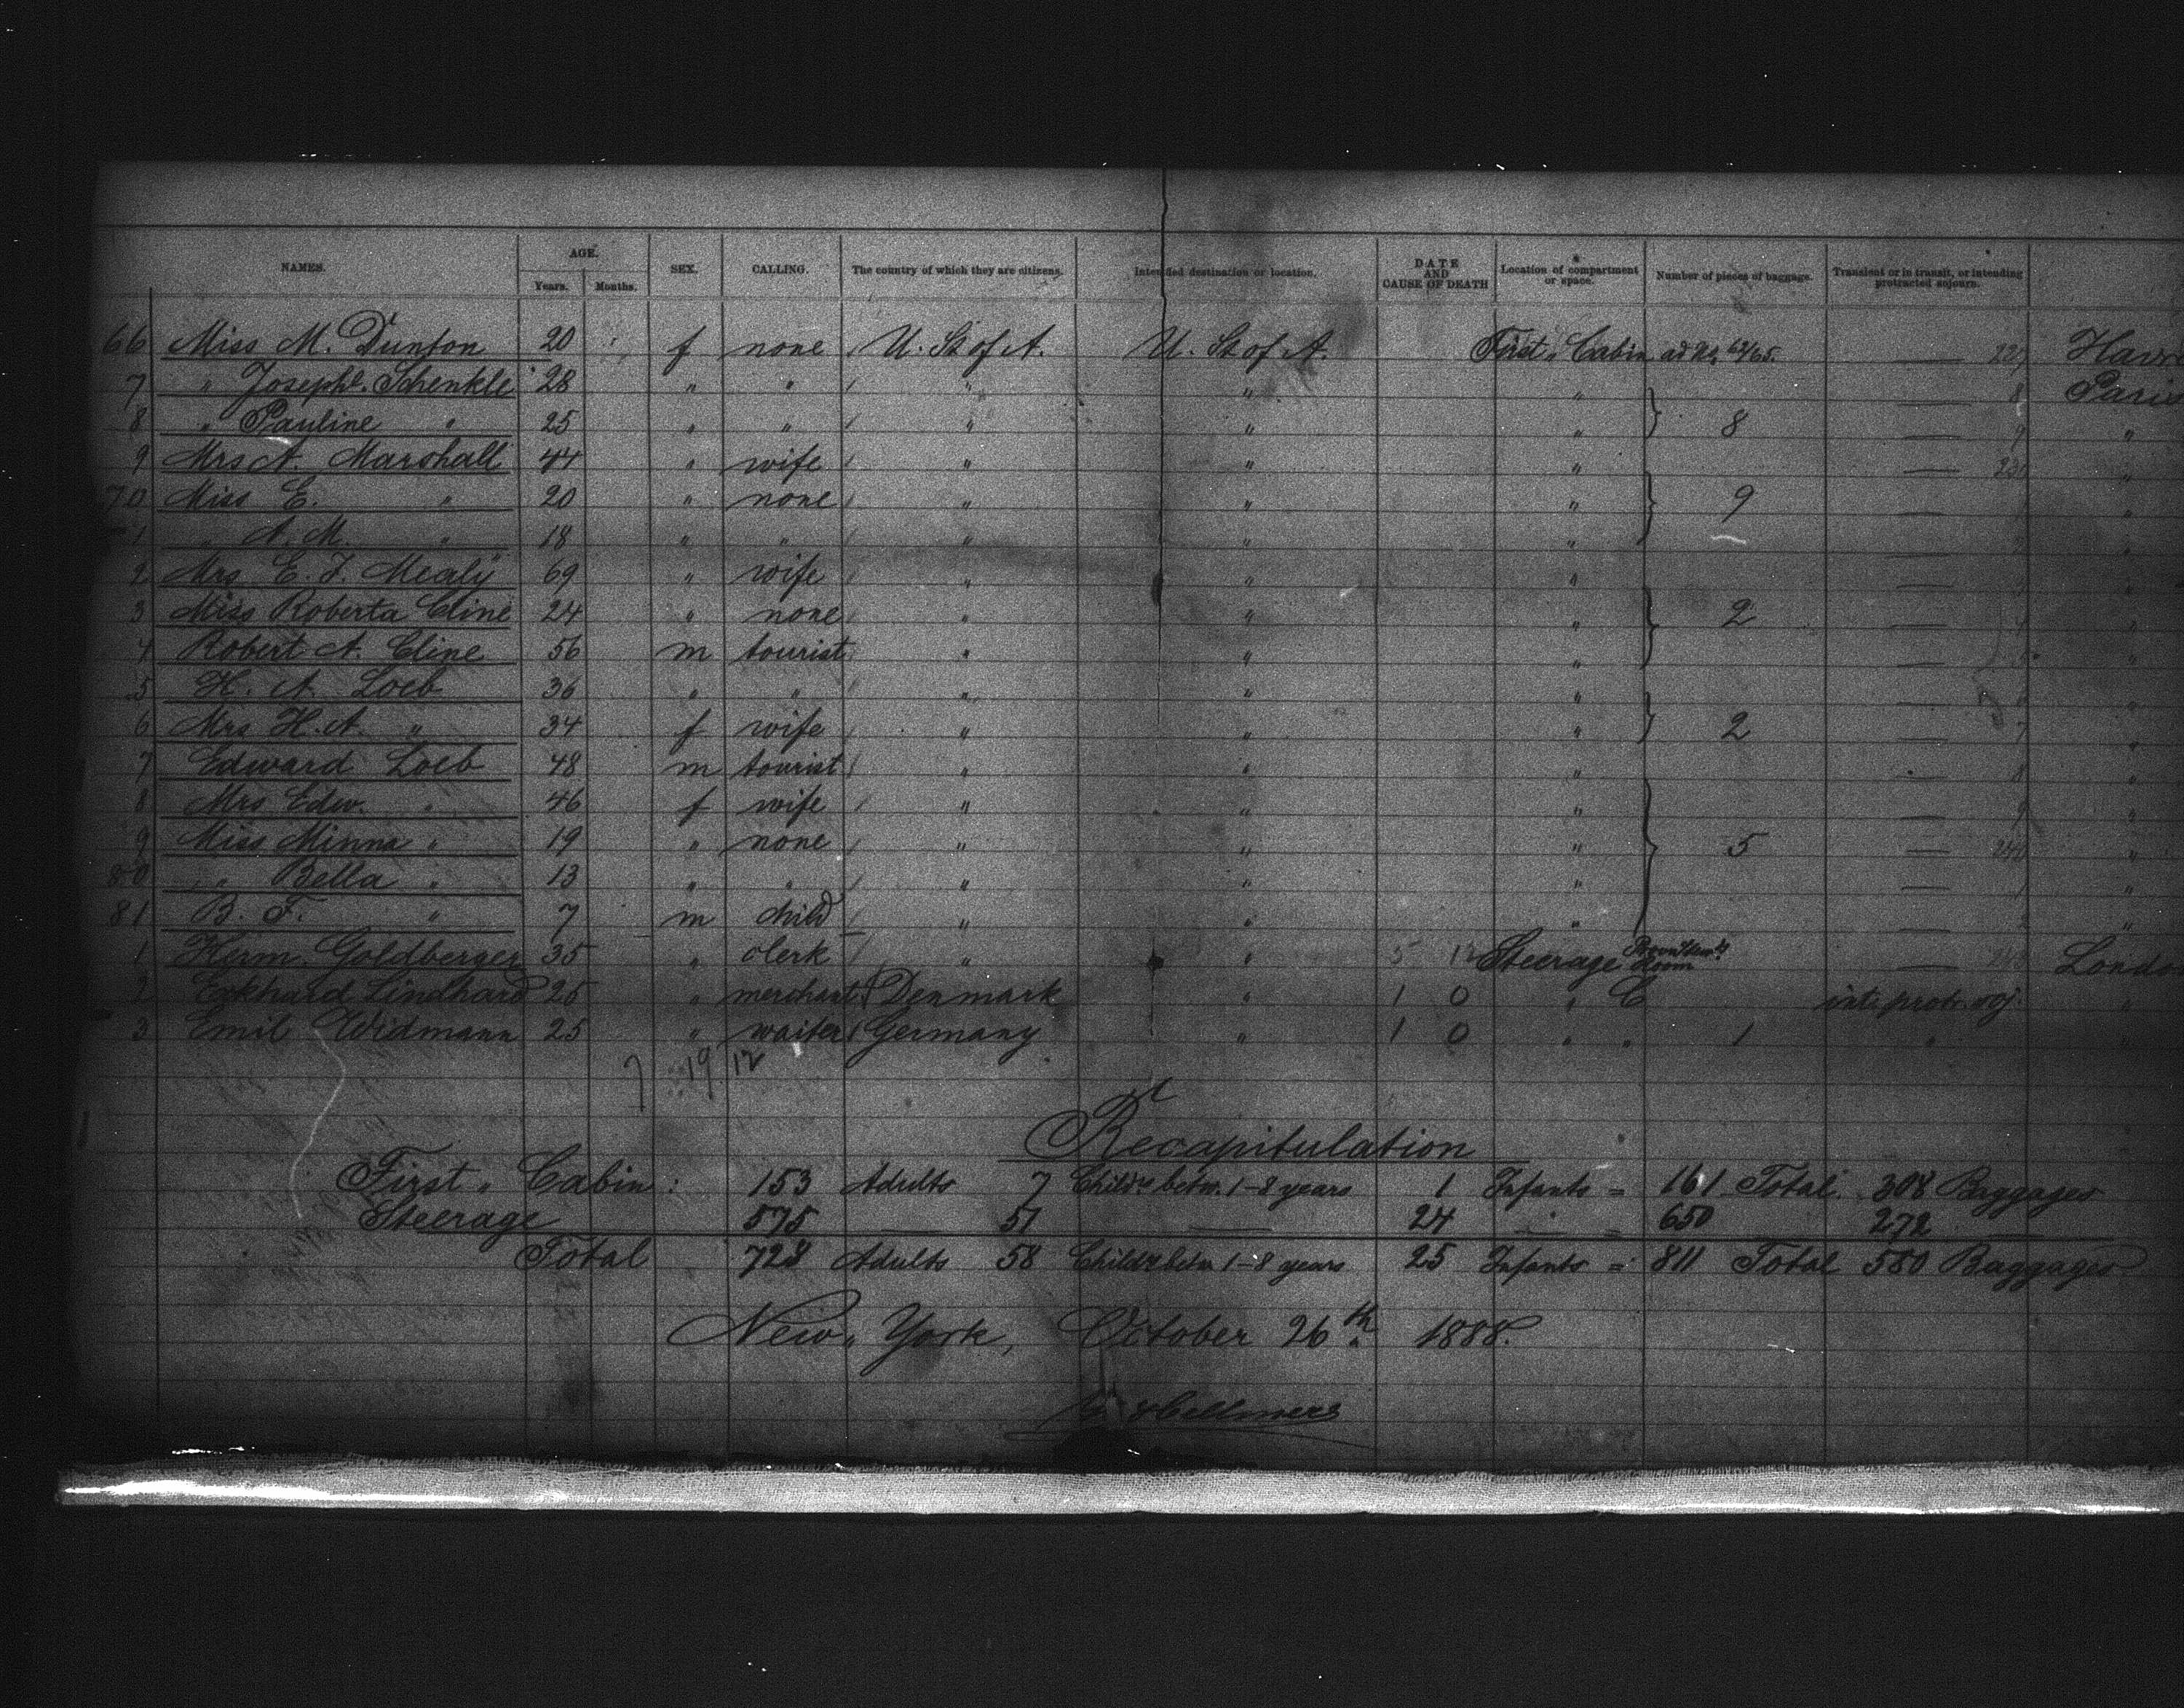 NAMES. AGE. Years. Months. SEX. CALLING. The country of which they are citizens. Intended destination or location. DATE AND CAUSE OF DEATH Location of compartment or space. Number of pieces of baggage. Transient or in transit, or intending protracted sojourn.
66 Miss M. Dunton 20 f none U. St of A. U. St of A. First " Cabin ad No 64/65. — 227
7 " Josephe. Schenkle 28 " " " " " — 8
8 " Pauline " 25 " " " " " 8 — 9 "
9 Mrs A. Marshall 44 " wife " " " — 230 "
70 Miss E. " 20 " none " " " 9 — "
1 " A. M. " 18 " " " " " — "
2 Mrs E. J. Mealy 69 " wife " " " — "
3 Miss Roberta Cline 24 " none " " " 2 — "
4 Robert A. Cline 56 m tourist " " " — "
5 H. A. Loeb 36 " " " " " — "
6 Mrs H. A. " 34 f wife " " " 2 — 7 "
7 Edward Loeb 48 m tourist " " " — 8 "
8 Mrs Edw. " 46 f wife " " " — 9 "
9 Miss Minna " 19 " none " " " 5 — 240 "
80 " Bella " 13 " " " " " — 1 "
81 B. F. " 7 m child " " " — 2 "
1 Herm. Goldberger 35 " clerk " " 5 12 Steerage Room —
2 Eckhard Lindhard 25 " merchant Denmark " 1 0 " C int. protr. soj. "
3 Emil Widmann 25 " waiter Germany " 1 0 " " 1 " "
7 19 12
Recapitulation
First " Cabin : 153 Adults 7 Childr. betw. 1-8 years 1 Infants = 161 Total. 308 Baggages
Steerage 575 — 51 — 24 — = 650 — 272 —
Total 728 Adults 58 Childr betw 1-8 years 25 Infants = 811 Total 580 Baggages
New " York, October 26th 1888.